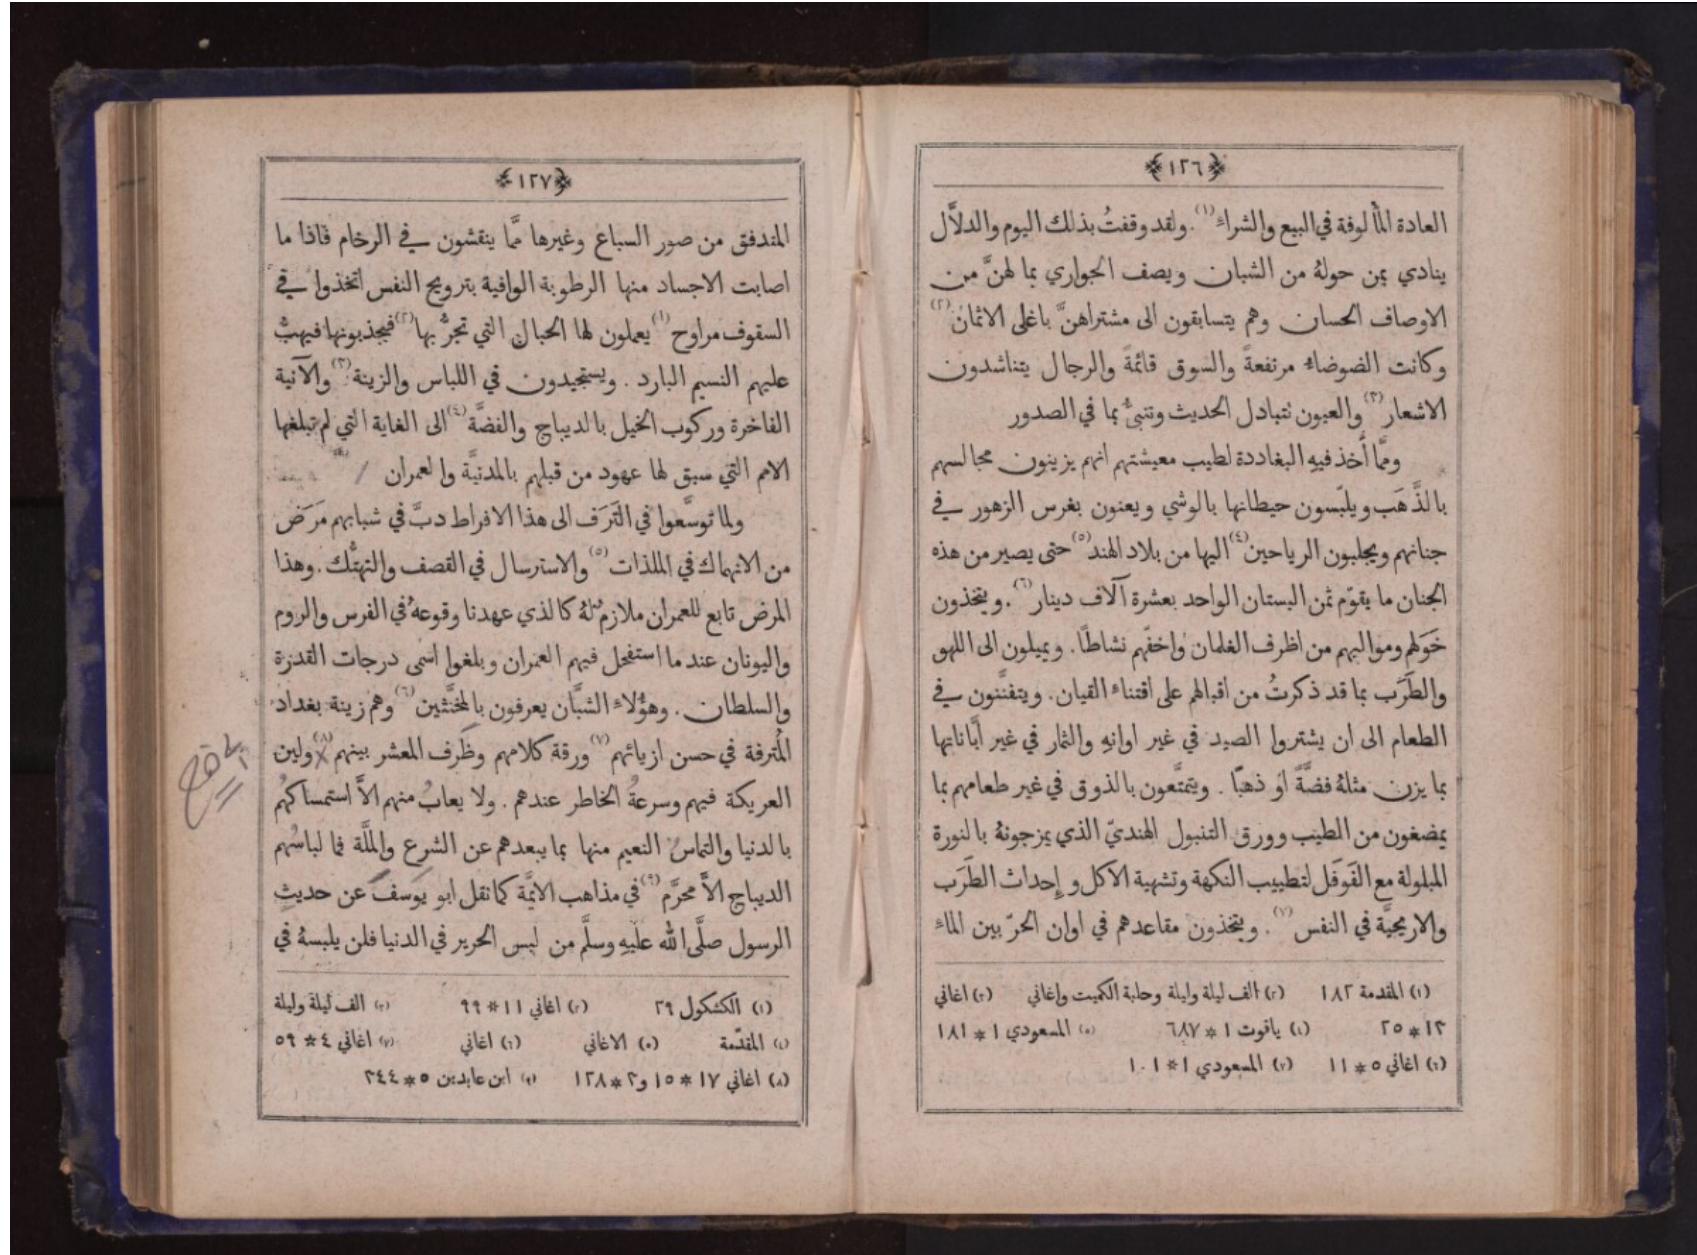 ﴿١٢٦﴾
العادة المألوفة في البيع والشراء (١) . ولقد وقفتُ بذلك اليوم والدلاَّل
ينادي بمن حولهُ من الشبان ويصف الجواري بما لهنَّ من
الاوصاف الحسان وهم يتسابقون الى مشتراهنَّ باغلى الاثمان (٢)
وكانت الضوضاء مرتفعةً والسوق قائمةً والرجال يتناشدون
الاشعار (٣) والعيون تتبادل الحديث وتنبئُ بما في الصدور
وممَّا أُخذ فيهِ البغاددة لطيب معيشتهم انهم يزينون مجالسهم
بالذَّهَب ويلبّسون حيطانها بالوشي ويعنون بغرس الزهور في
جنانهم ويجلبون الرياحين (٤) اليها من بلاد الهند (٥) حتى يصير من هذه
الجنان ما يقوّم ثمن البستان الواحد بعشرة آلاف دينار (٦) . ويتخذون
خَوَلهم ومواليهم من اظرف الغلمان واخفّهم نشاطًا . ويميلون الى اللهو
والطَرَب بما قد ذكرتُ من اقبالهم على اقتناء القيان . ويتفنَّنون في
الطعام الى ان يشتروا الصيد في غير اوانهِ والثمار في غير أبَّاناتها
بما يزن مثلهُ فضَّةً او ذهبًا . ويتمتَّعون بالذوق في غير طعامهم بما
يمضغون من الطيب وورق التنبول الهنديّ الذي يمزجونهُ بالنورة
المبلولة مع الفَوفَل لتطييب النكهة وتشهية الاكل وإحداث الطَرَب
والاريحيَّة في النفس (٧) . ويتخذون مقاعدهم في اوان الحرّ بين الماء
(١) المقدمة ١٨٢ (٢) الف ليلة وليلة وحلبة الكميت واغاني (٣) اغاني
١٣*٢٥ (٤) ياقوت ١*٦٨٧ (٥) المسعودي ١*١٨١
(٦) اغاني ٥*١١ (٧) المسعودي ١*١٠١
﴿١٢٧﴾
المتدفق من صور السباع وغيرها ممَّا ينقشون في الرخام فاذا ما
اصابت الاجساد منها الرطوبة الوافية بترويح النفس اتخذوا في
السقوف مراوح (١) يعملون لها الحبال التي تجرُّ بها (٢) فيجذبونها فيهبُّ
عليهم النسيم البارد . ويستجيدون في اللباس والزينة (٣) والآنية
الفاخرة وركوب الخيل بالديباج والفضَّة (٤) الى الغاية التي لم تبلغها
الامم التي سبق لها عهود من قبلهم بالمدنيَّة والعمران
ولما توسَّعوا في التَرَف الى هذا الافراط دبَّ في شبابهم مَرَض
من الانهماك في الملذات (٥) والاسترسال في القصف والتهتُّك . وهذا
المرض تابع للعمران ملازم لهُ كالذي عهدنا وقوعهُ في الفرس والروم
واليونان عند ما استفحل فيهم العمران وبلغوا اسمى درجات القدرة
والسلطان . وهؤُلاء الشبَّان يعرفون بالمخنَّثين (٦) وهم زينة بغداد
المُترفة في حسن ازيائهم (٧) ورقة كلامهم وظَرف المعشر بينهم (٨) ولين
العريكة فيهم وسرعةُ الخاطر عندهم . ولا يعابُ منهم الاَّ استمساكهُم
بالدنيا والتماسُ النعيم منها بما يبعدهم عن الشرع والملَّة فما لباسُهم
الديباج الاَّ محرَّم (٩) في مذاهب الايمَّة كما نقل ابو يوسف عن حديث
الرسول صلَّى الله عليهِ وسلَّم من لبس الحرير في الدنيا فلن يلبسهُ في
(١) الكشكول ٢٩ (٢) اغاني ١١*٩٩ (٣) الف ليلة وليلة
(٤) المقدّمة (٥) الاغاني (٦) اغاني (٧) اغاني ٤*٥٩
(٨) اغاني ١٧*١٥ و٢*١٢٨ (٩) ابن عابدين ٥*٢٤٤